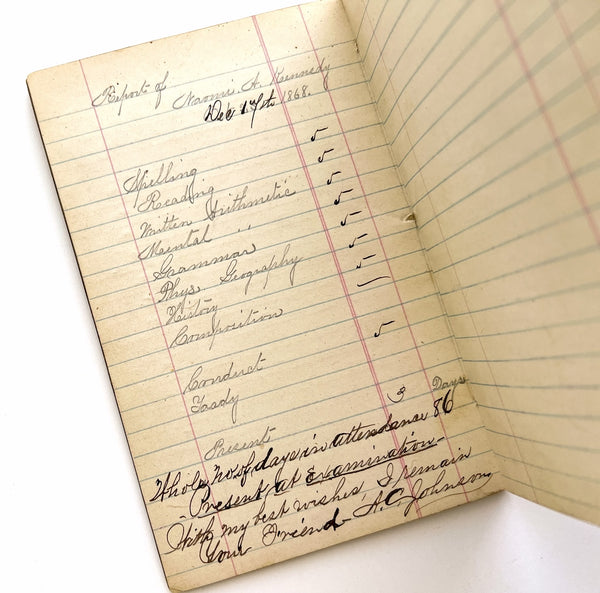 Report of Naomi A. Kennedy
Dec 17th 1868.
Spelling 5
Reading 5
Written Arithmetic 5
Mental " 5
Grammar 5
Phys. Geography 5
History 5
Composition —
Conduct 5
Tardy
Present 3 Days
Whole No of days in attendance 86
- Present at Examination -
With my best wishes, I remain
Your Friend - A.C. Johnson